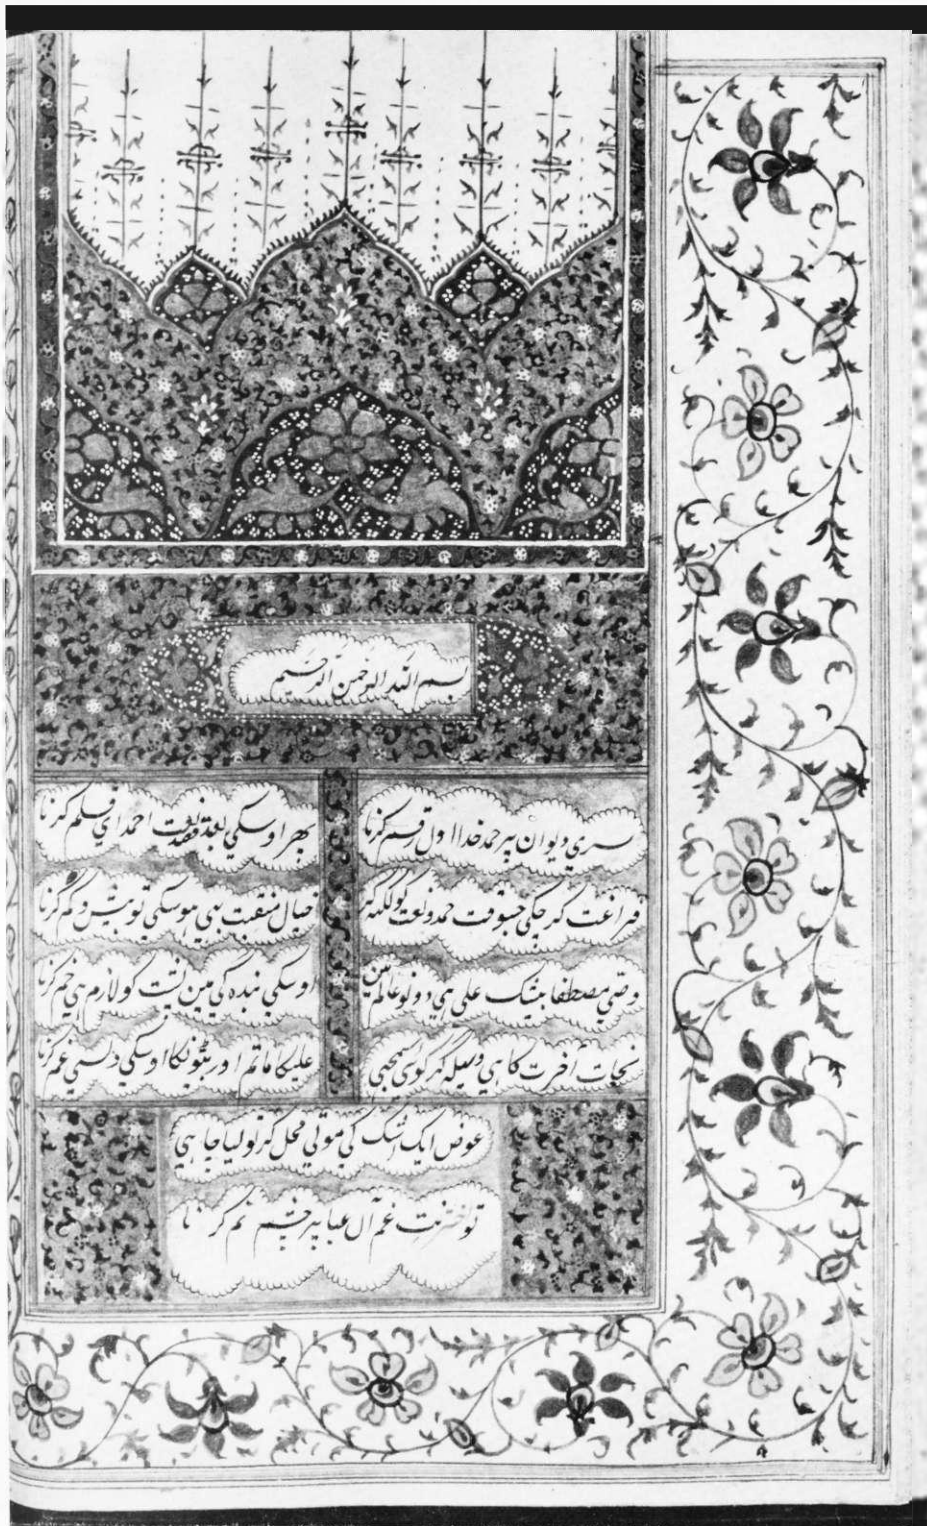 بسم الله الرحمن الرحیم
سري دیوان پر حمد خدا اول رقم کرنا
پھر اوسکي بعد نعت احمد اي قلم کرنا
فراغت کر چکي جسوقت حمد و نعت کو لکھ کر
خیال منقبت بي هوسکي تو بیش و کم کرنا
وصي مصطفا بیشک علي هي دونو عالم مین
اوسکي بنده گي مین پشت کو لازم هي خم کرنا
نجات آخرت کا هي وسیله گر کوئي سمجهي
علي کا ماتم اور بیٹونکا اوسکي دلسي غم کرنا
عوض ایک اشک کي موتي محل گر تو لیا چاهي
تو غم آل عبا پر چشم نم کرنا